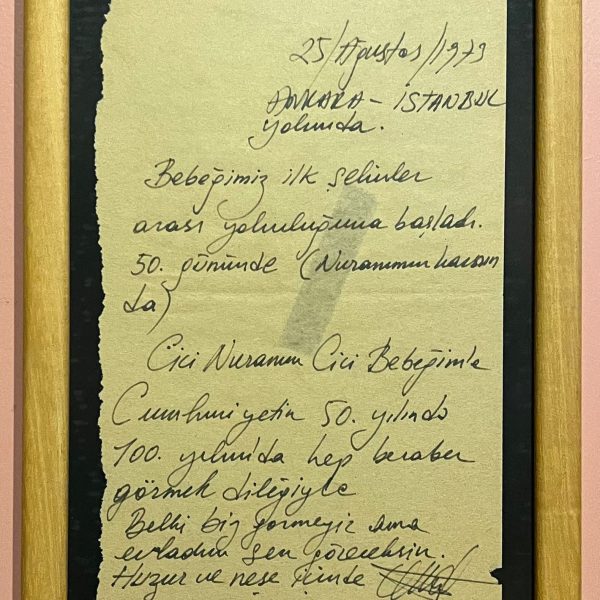 25/Ağustos/1973
ANKARA - İSTANBUL
yolunda.
Bebeğimiz ilk şehirler
arası yolculuğuna başladı.
50. gününde (Nuranımın karnın
da)
Cici Nuranım Cici Bebeğimle
Cumhuriyetin 50. yılında
100. yılında hep beraber
görmek dileğiyle
Belki biz görmeyiz ama
evladım sen göreceksin.
Huzur ve neşe içinde